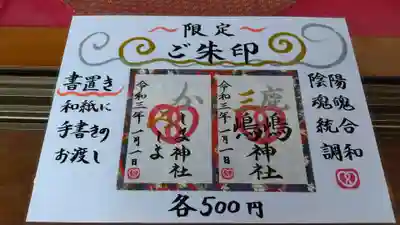 ～限定～
ご朱印
書置き
和紙に
手書きの
お渡し
かしま神社
令和三年一月一日
鹿嶋神社
三嶋
令和三年一月一日
陰陽
魂魄
統合
調和
各500円